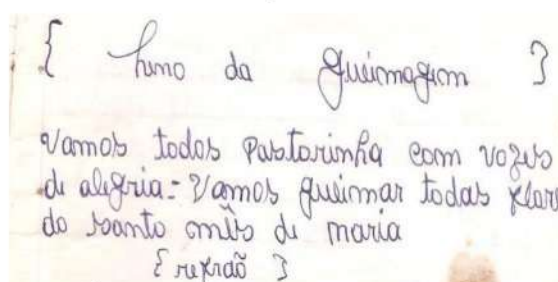 { hino da queimagem }
Vamos todos Pastorinha com vozes
de alegria = Vamos queimar todas flors
do santo mês de maria
{ refrão }